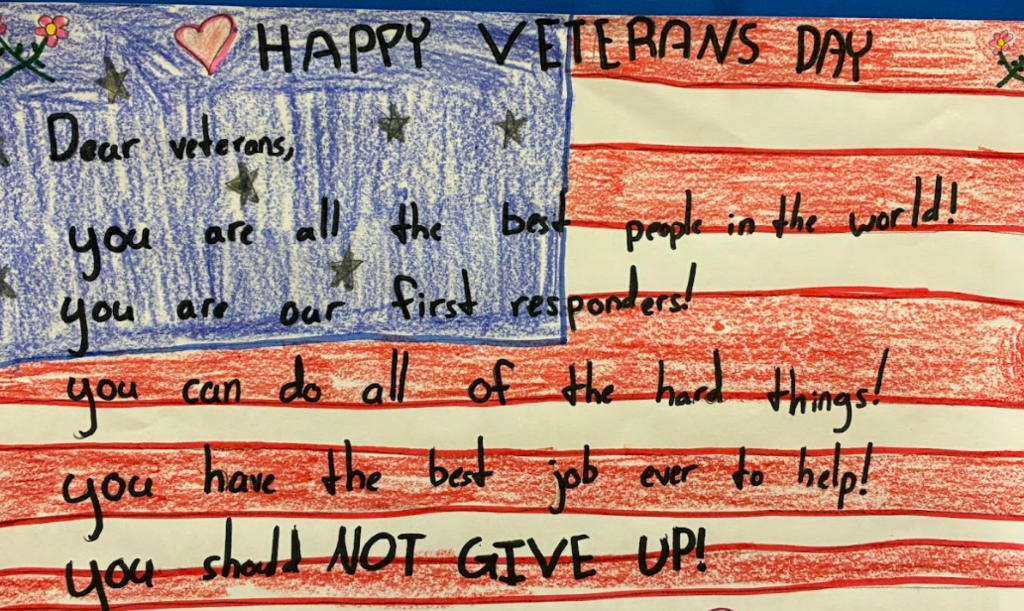 HAPPY VETERANS DAY
Dear veterans,
you are all the best people in the world!
you are our first responders!
you can do all of the hard things!
you have the best job ever to help!
you should NOT GIVE UP!